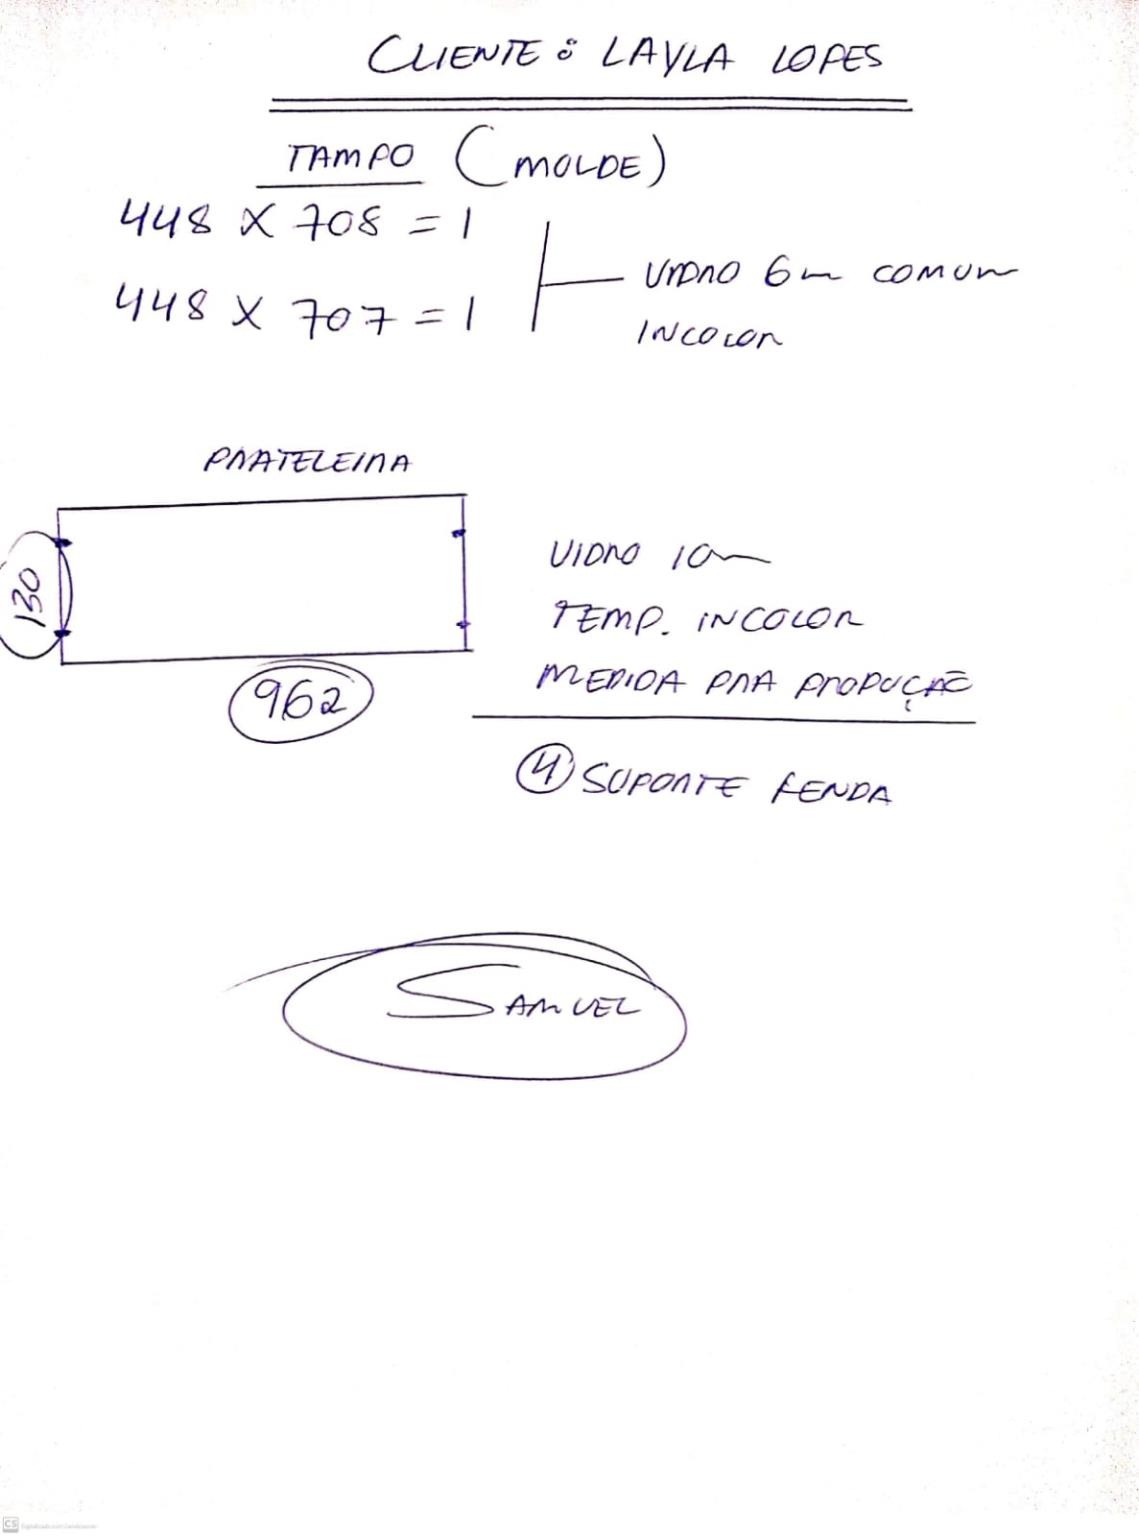 CLIENTE: LAYLA LOPES
TAMPO (MOLDE)
448 X 708 = 1
448 X 707 = 1
VIDRO 6m COMUM
INCOLOR
PRATELEIRA
130
962
VIDRO 10m
TEMP. INCOLOR
MEDIDA PRA PRODUÇÃO
4 SUPORTE FENDA
SAMUEL
CS